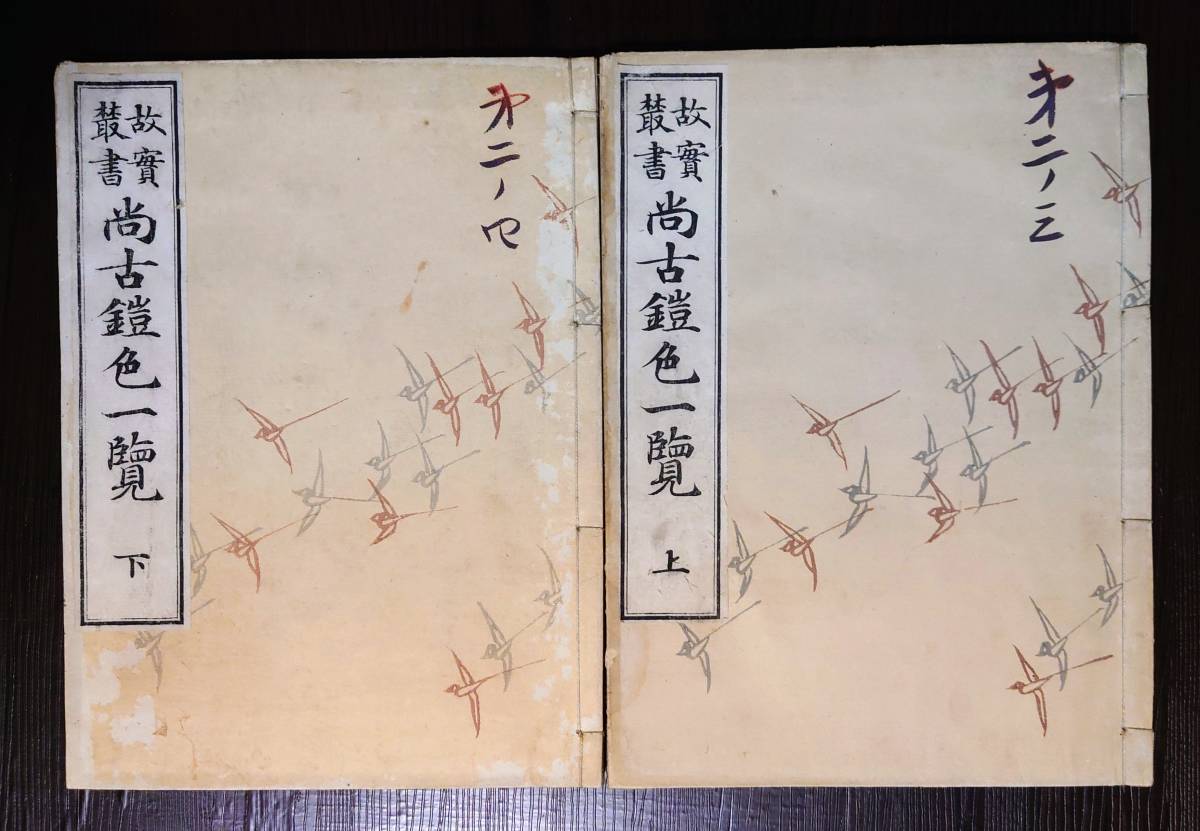 故實
叢書
尚古鎧色一覽
上
第二ノ三
故實
叢書
尚古鎧色一覽
下
第二ノ四